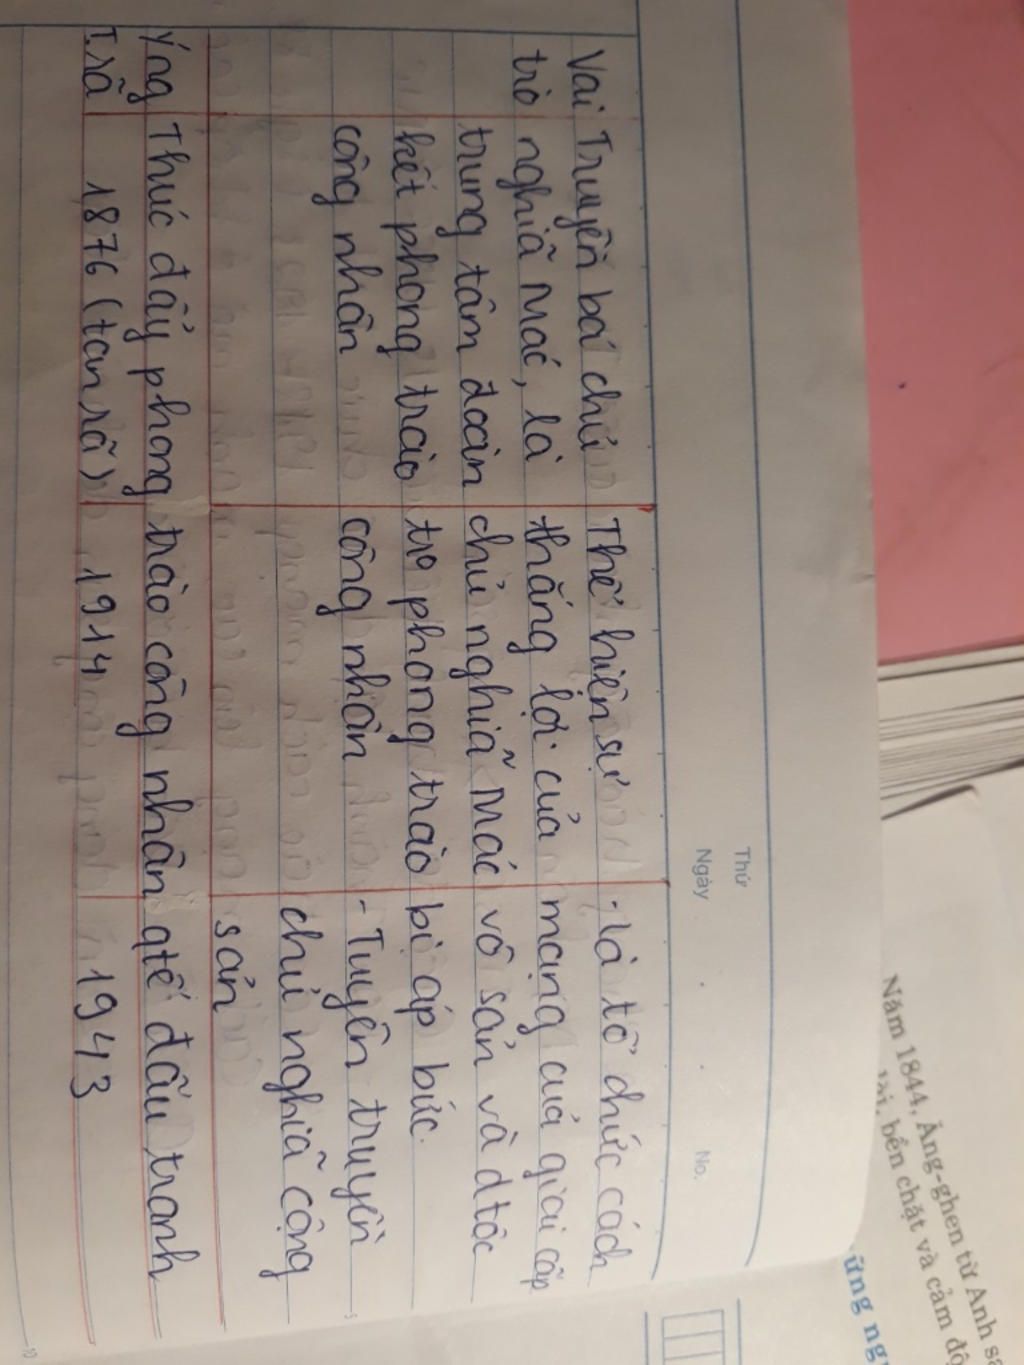 Thứ
Ngày . . No.
Vai Truyền bá chủ Thể hiện sự - là tổ chức cách
trò nghiã Mác, là thắng lợi của mạng cuả giai cấp
trung tâm đoàn chủ nghiã Mác vô sản và dtộc
kết phong trào tro phong trào bị áp bức.
công nhân công nhân - Tuyên truyền
chủ nghiã cộng
sản
Ýng Thúc đẩy phong trào công nhân qtế đấu tranh
T.rã 1876 (tan rã) 1914 1943
Năm 1844, Ăng-ghen từ Anh
bền chặt và cảm